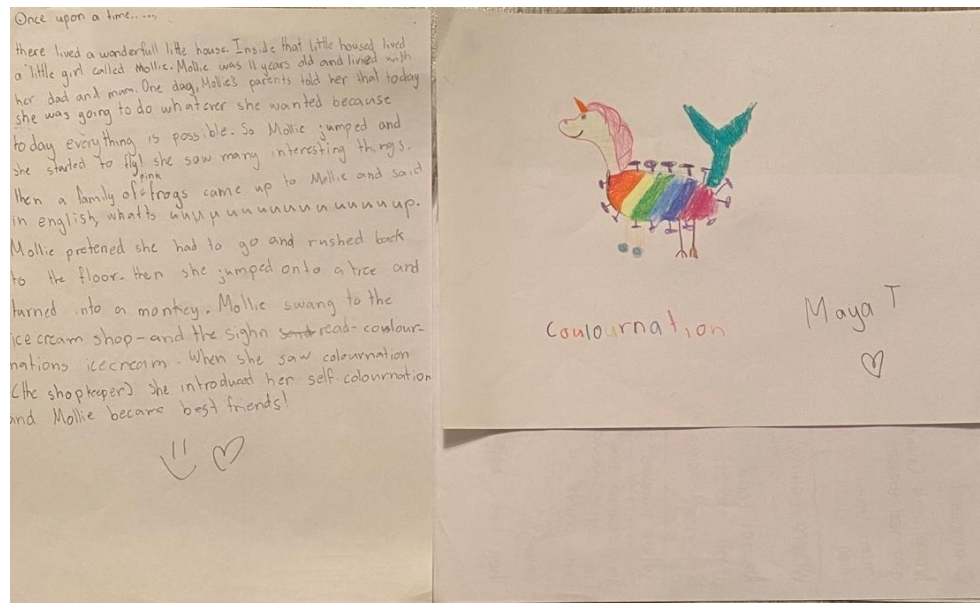 Once upon a time.....,
there lived a wonderfull litte house. Inside that little housed lived
a little girl called Mollie. Mollie was 11 years old and livied with
her dad and mum. One day, Mollie's parents told her that today
she was going to do whatever she wanted because
today everything is possible. So Mollie jumped and
she started to fly! she saw many interesting things.
pink
then a family of frogs came up to Mollie and said
in english, whatts uuuyuuuuuuuuuuuuuup.
Mollie pretened she had to go and rushed back
to the floor. then she jumped onto a tree and
turned into a monkey. Mollie swang to the
ice cream shop-and the sighn read-coulour-
nations icecream. When she saw colournation
(the shopkeeper) she introduced her self. colournation
and Mollie became best friends!
Coulournation
Maya T